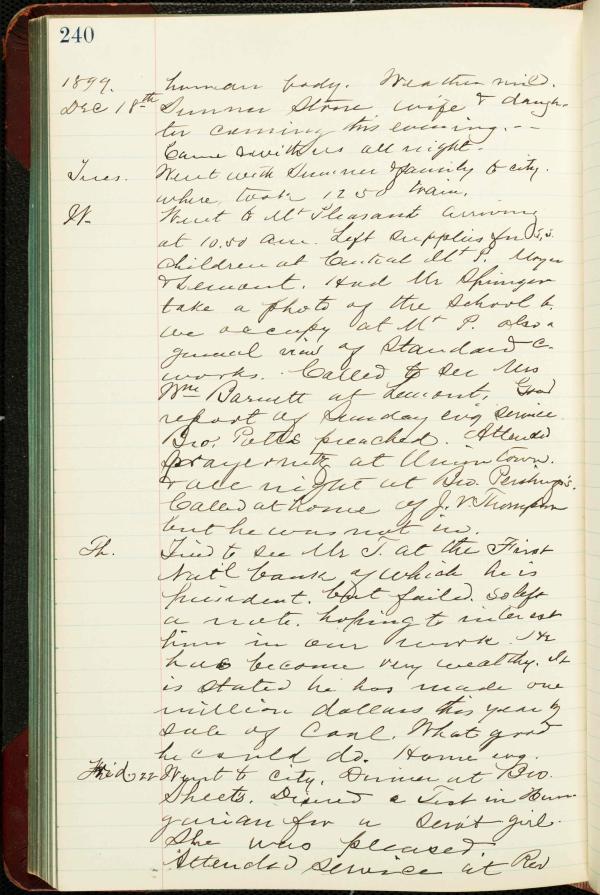 240
1899. human body. Weather mild.
Dec 18th Sumner Stone wife & daugh-
ter coming this evening. --
Came & with us all night.
Tues. Went with Sumner & family to city.
where took 12 50 train.
W. Went to Mt Pleasant arriving
at 10.50 am. Left supplies for S.S.
children at Central Mt P. Moyer
& Lemont. Had Mr Springer
take a photo of the School h.
we occupy at Mt P. also a
general view of Standard C.
works. Called to see Mrs
Wm Barnett at Lemont, Good
report of Sunday evg service
Bro. Potts preached. Attended
prayermtg at Uniontown.
& all night at Bro. Pershing's.
Called at home of J. V. Thompson
but he was not in.
Th. Tried to see Mr T. at the First
Nat'l bank of which he is
president. but failed. So left
a note. hoping to interest
him in our work. He
has become very wealthy. It
is stated he has made one
million dollars this year by
sale of Coal. What good
he could do. Home evg.
Frid 22 Went to city. Dinner at Bro.
Sheets. Desired a Test in Hun-
garian for a serv't girl.
She was pleased
Attended service at Rev